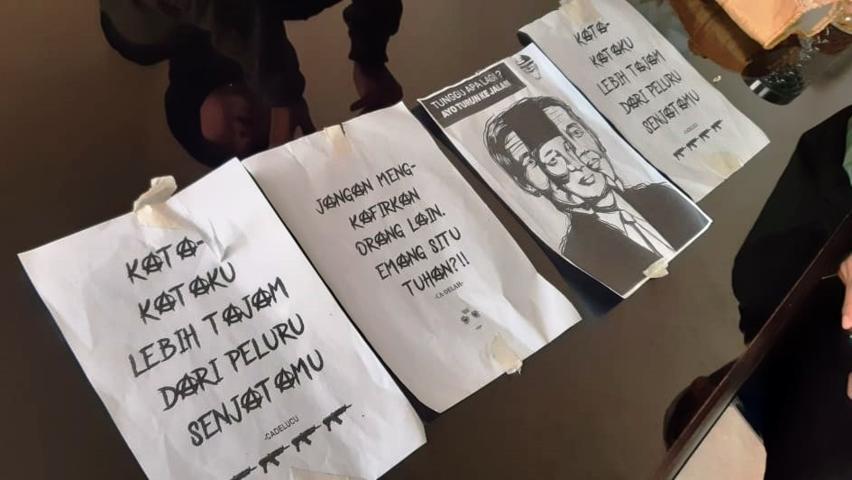 KATA-
KATAKU
LEBIH TAJAM
DARI PELURU
SENJATAMU
-CADELUCU
JANGAN MENG-
KAFIRKAN
ORANG LAIN.
EMANG SITU
TUHAN?!!
-CA DELAH-
TUNGGU APA LAGI?
AYO TURUN KE JALAN
KATA-
KATAKU
LEBIH TAJAM
DARI PELURU
SENJATAMU
-CADELUCU